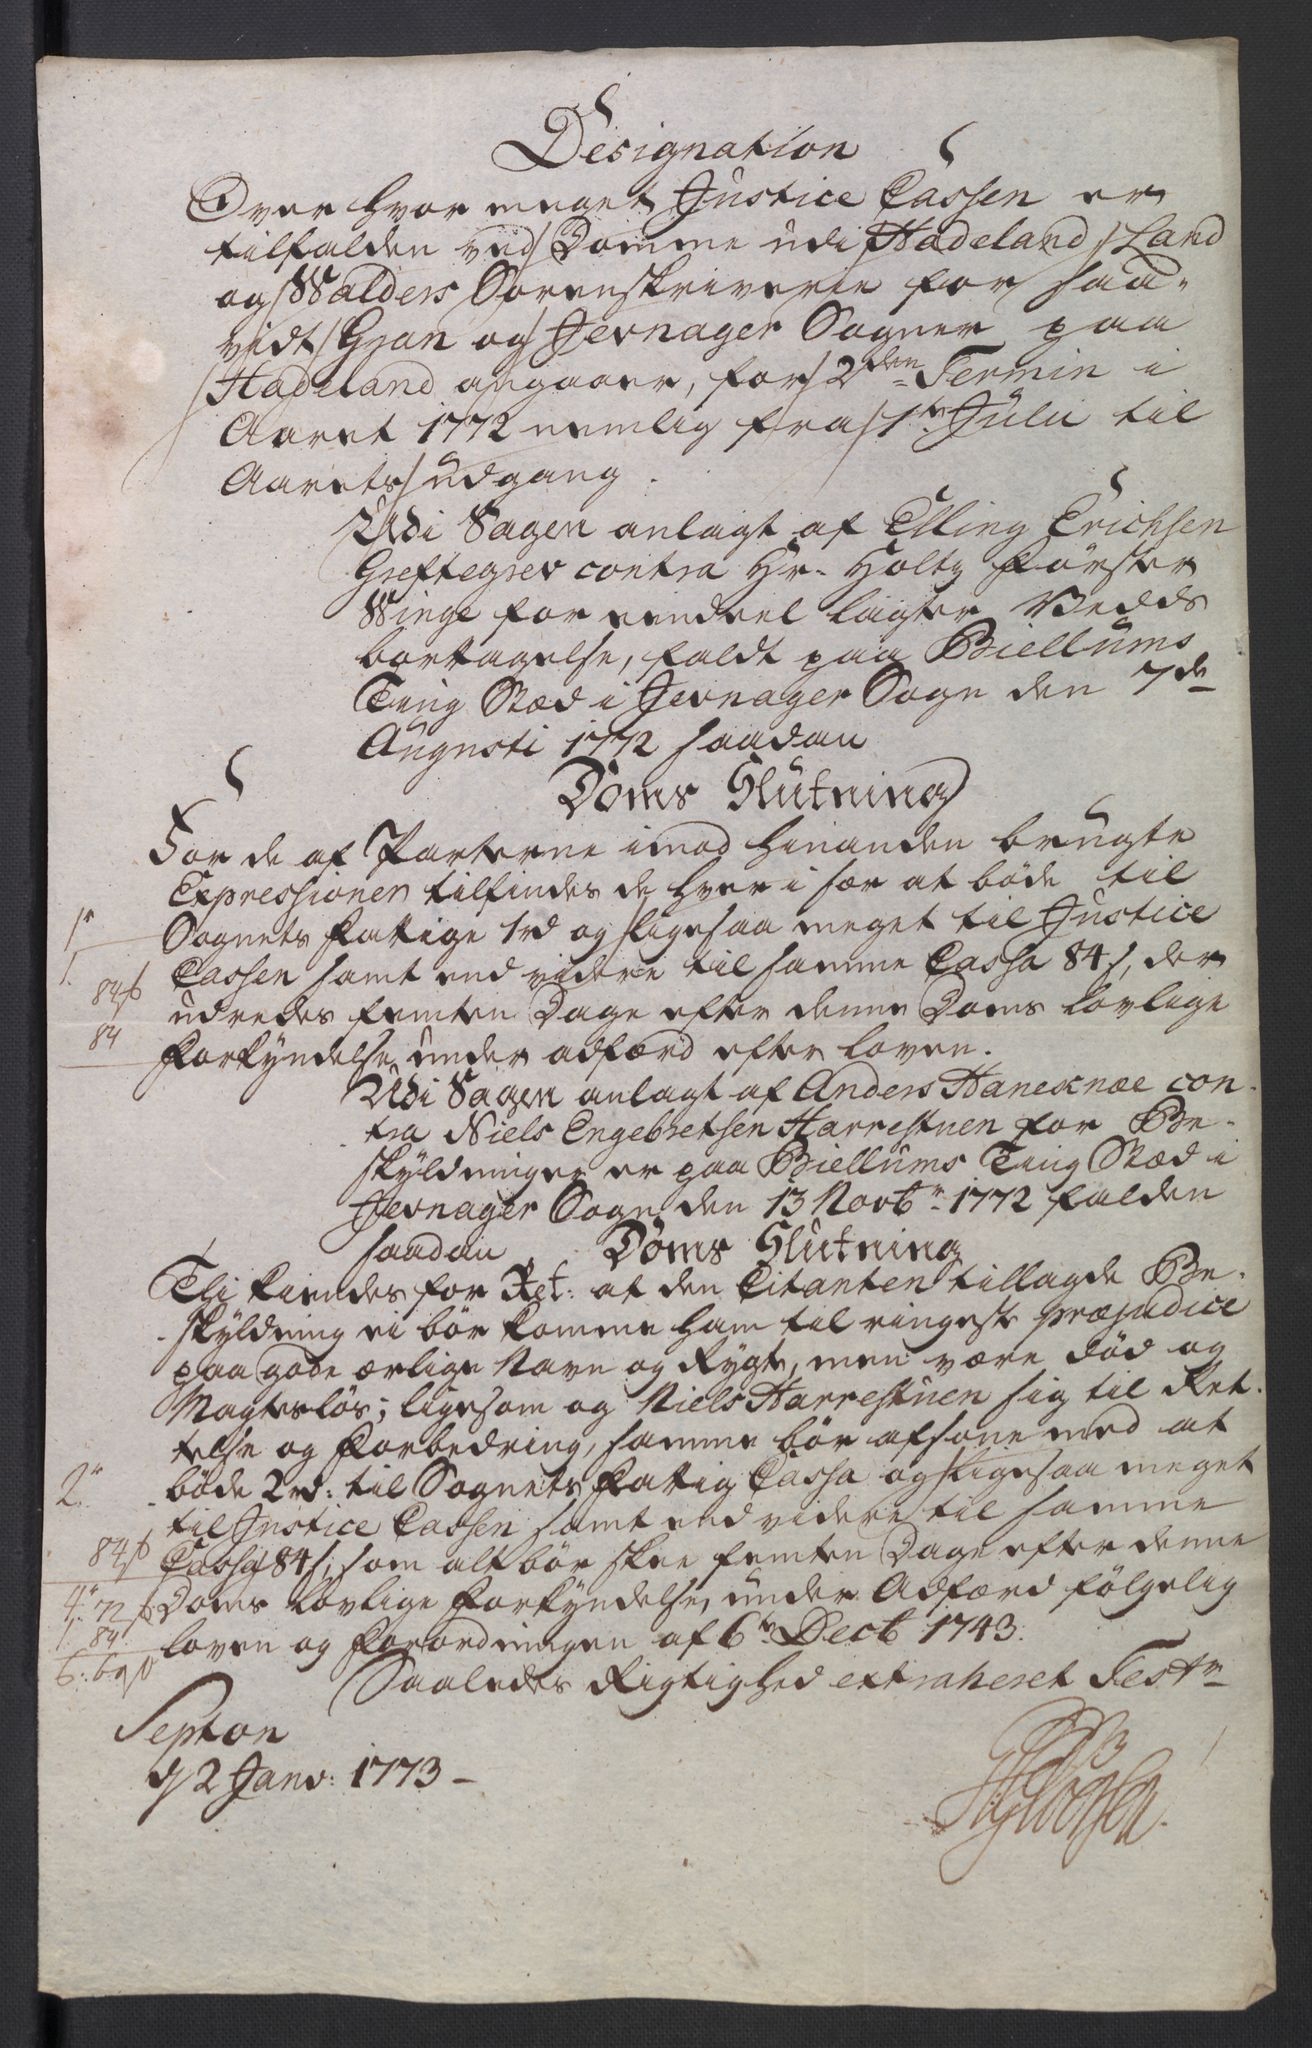 Designation
Over hvor meget Justice Cassen er
tilfalden ved Domme udi Hadeland, Land
og Walders Sorenskriverie for saa-
vidt Gran og Jevnager Sogner paa
Hadeland angaaer, for 2den Termin i
Aaret 1772 nemlig fra 1te Julii til
Aarets udgang.
Udi Sagen anlagt af Elling Erichsen
Greftegrev contra Hr. Holtz Förster
Winge for eendeel lagter Vedds
bortagelse, faldt paa Biellums
Ting Stæd i Jevnager Sogn den 7de
Augusti 1772 saadan
Doms Slutning
For de af Parterne imod hinanden brugte
Expressioner tilfindes de hver i sær at böde til
Sognets Fattige 1rd og ligesaa meget til Justice
Cassen samt end videre til samme Cassa 84 s, der
udredes femten Dage efter denne Doms lovlige
Forkyndelse under adfærd efter loven.
1"
1.
84 s
84
Udi Sagen anlagt af Anders Hanesnæe con-
tra Niels Engebretsen Harrestuen for Be-
skyldninger er paa Biellums Ting Stæd i
Jevnager Sogn den 13 Novbr. 1772 falden
saadan Doms Slutning
Thi kiendes for Ret: at den Citanten tillagde Be-
skyldning ei bör komme ham til ringeste præjudice
paa gode ærlige Navn og Rygte, men være död og
Magteslös; ligesom og Niels Harrestuen sig til Ret-
telse og Forbedring, samme bör afsone med at
böde 2rd: til Sognets Fattig Cassa og ligesaa meget
til Justice Cassen samt end videre til samme
Cassa 84 s, som alt bör skee femten Dage efter denne
Doms lovlige Forkyndelse, under Adfærd fölgelig
loven og Forordningen af 6te Decb 1743.
2"
84 s
4" 72 s
1. 84
6: 60 s
Saaledes Rigtighed extraheret Test
Septon
d 2 Janv: 1773 –